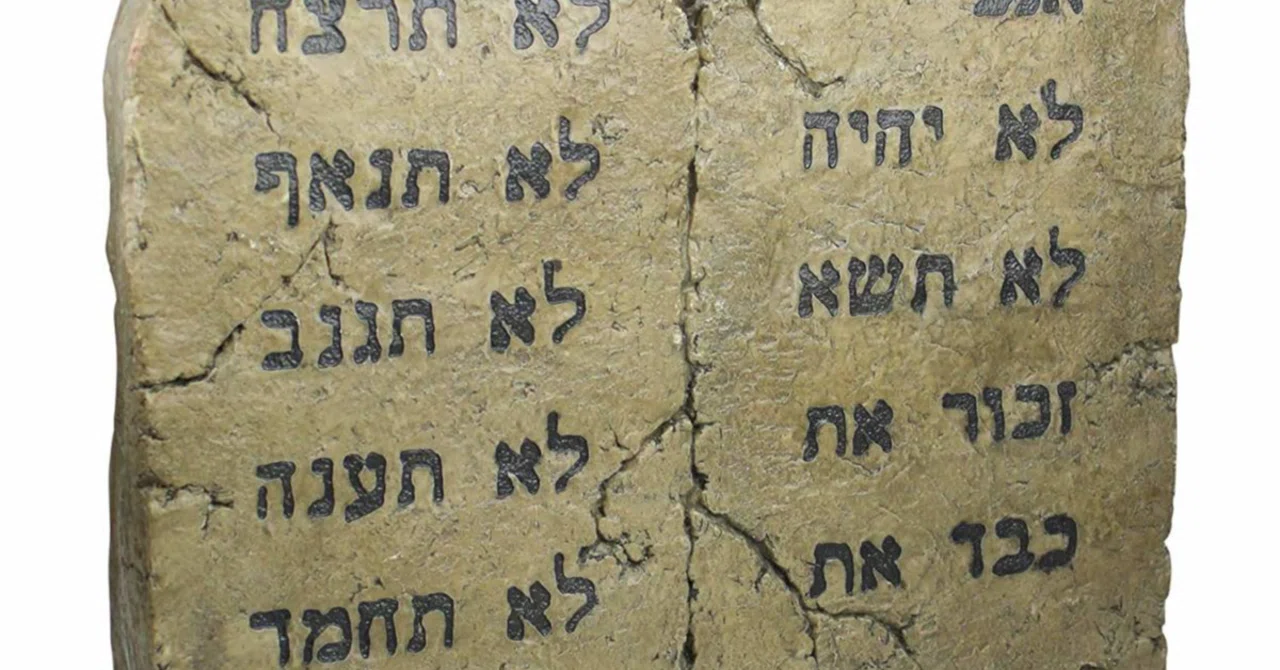 לא יהיה
לא תשא
זכור את
כבד את
לא תרצח
לא תנאף
לא תגנב
לא תענה
לא תחמד